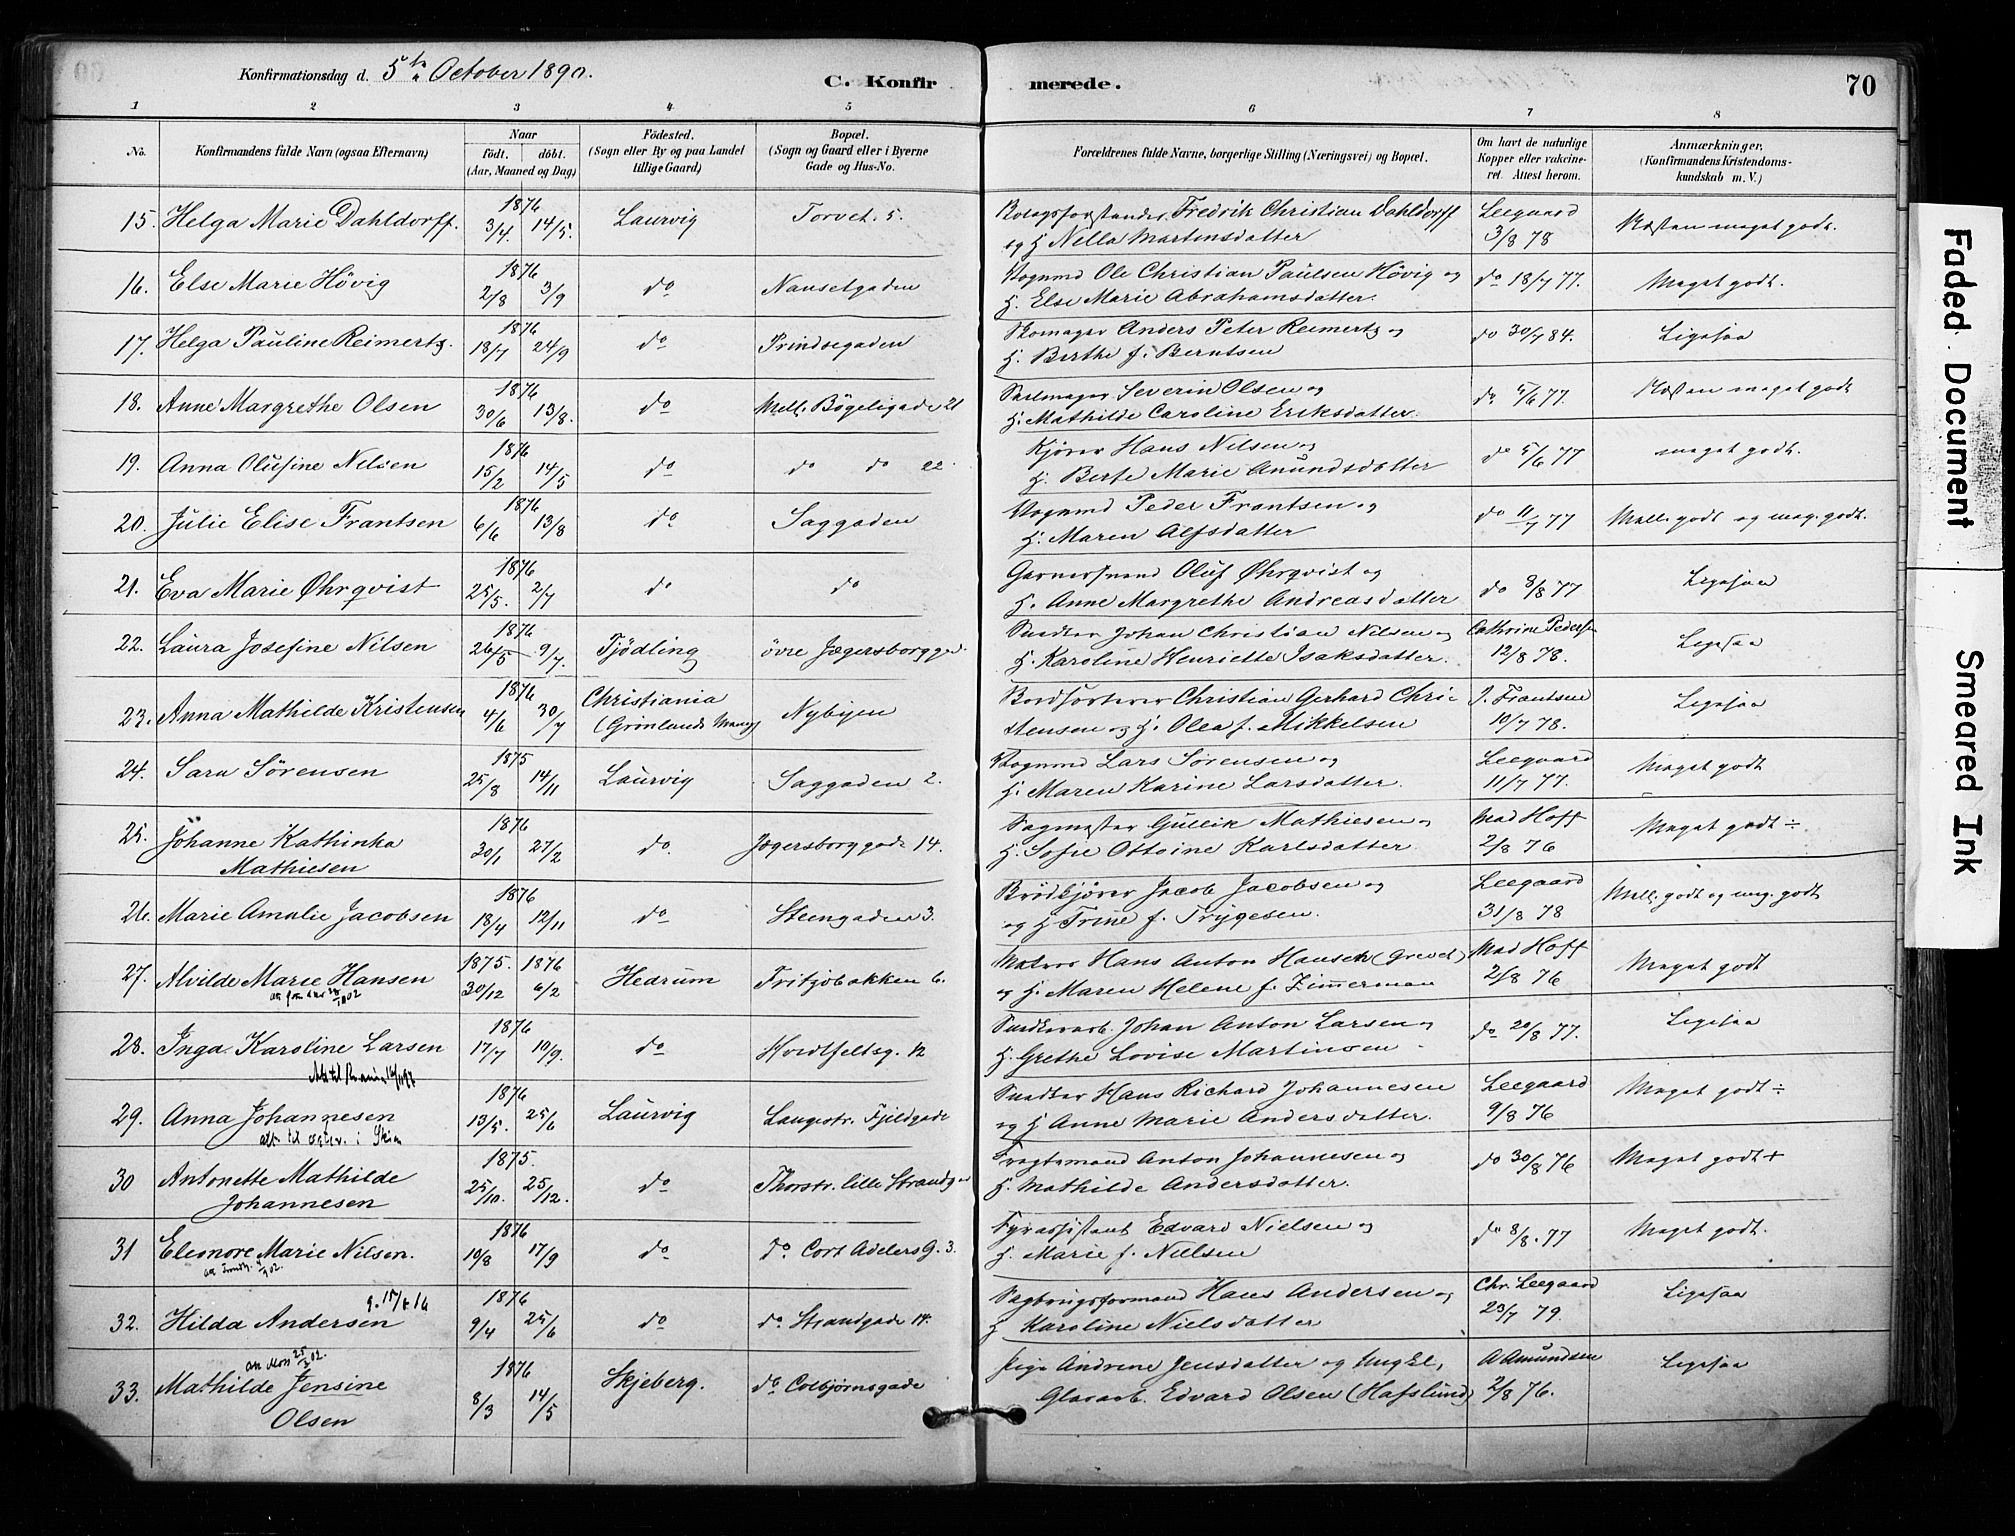 Konfirmationsdag d. 5te October 1890.
C. Konfirmerede.
70
1 2 3 4 5 6 7 8
No.
Konfirmandens fulde Navn (ogsaa Efternavn)
Naar
födt. döbt.
(Aar, Maaned og Dag)
Födested.
(Sogn eller By og paa Landet
tillige Gaard)
Bopæl.
(Sogn og Gaard eller i Byerne
Gade og Hus-No.
Forældrenes fulde Navne, borgerlige Stilling (Næringsvei) og Bopæl.
Om havt de naturlige
Kopper eller vakcine-
ret. Attest herom.
Anmærkninger.
(Konfirmandens Kristendoms-
kundskab m. V.)
15. Helga Marie Dahldorff. 1876 3/4. 14/5. Laurvig Torvet. 5. Fredrik Christian Dahldorff
og H. Nella Martinsdatter Leegaard 3/8 78 Næsten meget godt.
16. Else Marie Hövig 1876 2/8 3/9 do Nansetgaden Vognmd Ole Christian Paulsen Hövig og
H. Else Marie Abrahamsdatter. do 18/7 77. Meget godt.
17. Helga Pauline Reimertz. 1876 18/7 24/9 do Prindsegaden Skomager Anders Peter Reimertz og
H. Birthe f. Berntsen do 30/7 84. Ligesaa
18. Anne Margrethe Olsen 1876 30/6 13/8. do Mell. Bögeligade 21 Severin Olsen og
H. Mathilde Caroline Eriksdatter. do 5/6 77. Næsten meget godt
19. Anna Olufine Nilsen 1876 15/2 14/5 do do do 22. Kjörer Hans Nilsen og
H. Berte Marie Anundsdatter do 5/6 77 meget godt.
20. Julie Elise Frantsen 1876 6/6 13/8 do Saggaden Vognmd Peder Frantsen og
H. Maren Alfsdatter do 11/7 77 Mell. godt og meg. godt.
21. Eva Marie Øhrqvist 1876 25/5. 2/7 do do Oluf Øhrqvist og
H. Anne Margrethe Andreasdatter do 8/8 77 Ligesaa
22. Laura Josefine Nilsen 1876 26/5 9/7. Tjödling övre Jægersborggd. Snedker Johan Christian Nilsen og
H. Karoline Henriette Isaksdatter. Cathrine Pedersen 12/8 78. Ligesaa
23. Anna Mathilde Kristensen 1876 4/6 30/7 Christiania
(Grönlands Menig) Nybyen Christian Gerhard Chri-
stensen og H. Olea f. Mikkelsen J. Frantsen 10/7 78. Ligesaa
24. Sara Sörensen 1875 25/8 14/11 Laurvig Saggaden 2. Vognmd Lars Sörensen og
H. Maren Karine Larsdatter. Leegaard 11/7 77. Meget godt
25. Johanne Kathinka
Mathiesen 1876 30/1 27/2 do. Jægersborggade 14. Sagmester Gullik Mathiesen og
H. Sofie Ottoine Karlsdatter. Mad Hoff 2/8 76 Meget godt ÷
26. Marie Amalie Jacobsen 1876 18/4 12/11 do Steengaden 3. Brödkjörer Jacob Jacobsen og
og H Trine f. Trygesen. Leegaard 31/8 78 Mell. godt og meg. godt
27. Alvilde Marie Hansen 1875. 30/12 1876 6/2 Hedrum Fritzöbakken 6. Hans Anton Hansen
og H. Maren Helene f. Zimmerman Mad Hoff 2/8 76 Meget godt
28. Inga Karoline Larsen 1876 17/7 10/9. do Hvidtfeltsg. 12 Snedkerarb. Johan Anton Larsen og
H. Grethe Lovise Martinsen do 20/8 77. Ligesaa
29. Anna Johannesen 1876 13/5. 25/6 Laurvig Langestr. Fjeldgade Snedker Hans Richard Johannesen
og H Anne Marie Andersdatter. Leegaard 9/8 76 Meget godt ÷
30 Antonette Mathilde
Johannesen 1875. 25/10. 25/12. do Thorstr. lille Strandg. Fragtemand Anton Johannesen og
H. Mathilde Andersdatter. do 30/8 76 Meget godt +
31 Eleonore Marie Nilsen. 1876 10/8 17/9 do do Cort Adelers G. 3. Fyrassistent Edvard Nielsen og
H. Marie f. Nielsen do 8/8. 77 Meget godt.
32. Hilda Andersen 1876 9/4 25/6 do do Strandgade 14. Sagbrugsformand Hans Andersen og
H Karoline Nielsdatter Chr. Leegaard 23/7 79. Ligesaa
33. Mathilde Jensine
Olsen 1876 8/3 14/5 Skjeberg. do Colbjörnsgade Pige Andrine Jensdatter og Ungkl.
Glasarb. Edvard Olsen (Hafslund) A Amundsen 2/8 76. Ligesaa
Faded Document
Smeared Ink